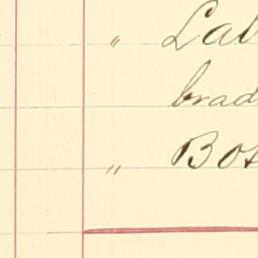 " Lab
brad
" Bos